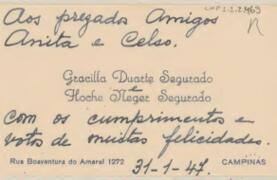 Aos prezados Amigos
Anita e Celso.
Gracilla Duarte Segurado
e
Hoche Neger Segurado
com os cumprimentos e
votos de muitas felicidades.
Rua Boaventura do Amaral 1272
31-1-47.
CAMPINAS